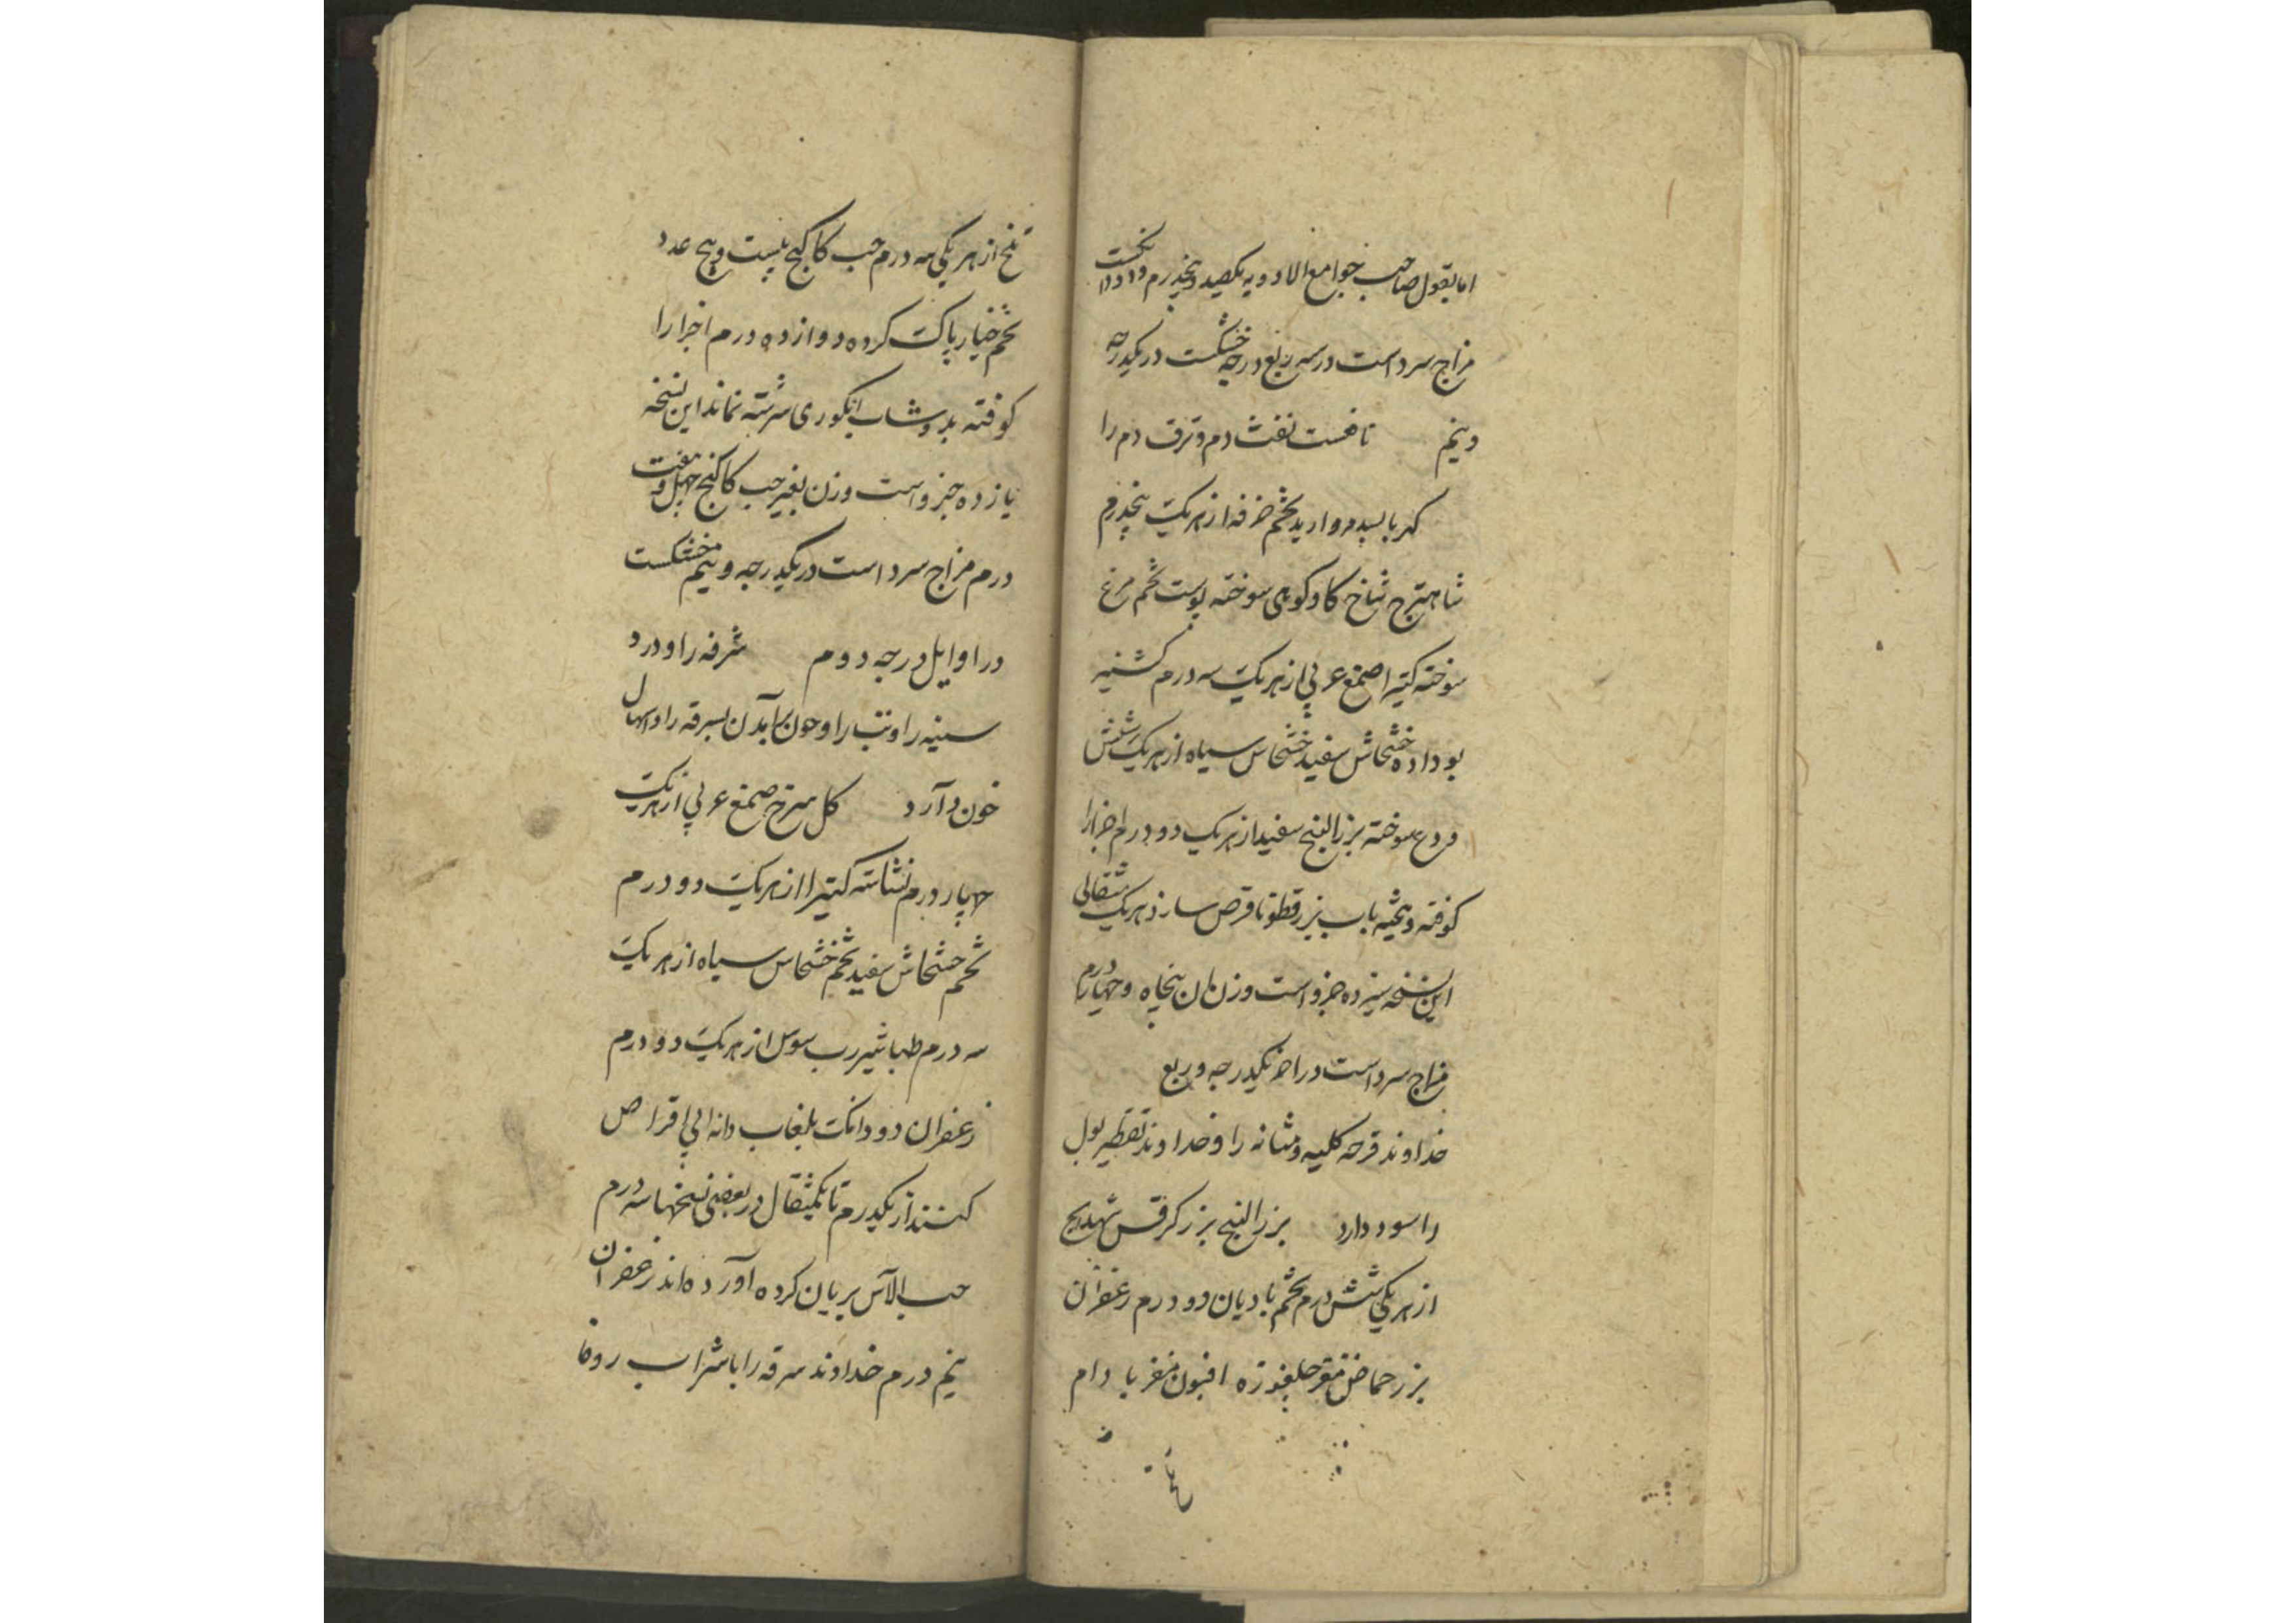 اما بقول صاحب جوامع الادویه یکصد و پنجدرم و
مزاج سرد است در سه ربع درجه خشکست در یکدرجه
و نیم نافعست نفث دم و نزف دم را
کهربا بسد مروارید تخم خرفه از هر یک پنجدرم
شاهترج شاخ کاو کوهی سوخته پوست تخم مرغ
سوخته کتیرا صمغ عربی از هر یک سه درم کشنیز
بو داده خشخاش سفید خشخاش سیاه از هر یک شش
ودع سوخته بزر البنج سفید از هر یک دو درم اجزا را
کوفته و بیخته باب بزرقطونا قرص سازند هر یک مثقالی
این نسخه سیزده جزو است وزن ان پنجاه و چهار درم
مزاج سرد است در اخر یکدرجه و ربع
خداوند قرحه کلیه و مثانه را و خداوند تقطیر بول
را سود دارد بزر البنج بزر کرفس شهدانج
از هر یکی شش درم تخم بادیان دو درم زعفران
بزر حماض مغز جلغوزه افیون مغز بادام
تلخ از هر یکی سه درم حب کاکنج بیست و پنج عدد
تخم خیار پاک کرده دوازده درم اجزا را
کوفته بدوشاب انکوری سرشته نماند این نسخه
یازده جزو است وزن بغیر حب کاکنج چهل و هفت
درم مزاج سرد است در یکدرجه و نیم خشکست
در اوایل درجه دوم شرفه را و درد
سینه را و تب را و خون برآمدن بسرفه را و اسهال
خون دارد کل سرخ صمغ عربی از هر یک
چهار درم نشاسته کتیرا از هر یک دو درم
تخم خشخاش سفید تخم خشخاش سیاه از هر یک
سه درم طباشیر رب سوس از هر یک دو درم
زعفران دو دانک بلعاب دانه ابی اقراص
کنند از یکدرم تا یکمثقال در بعضی نسخها سه درم
حب الآس بریان کرده آورده اند زعفران
نیم درم خداوند سرفه را با شراب